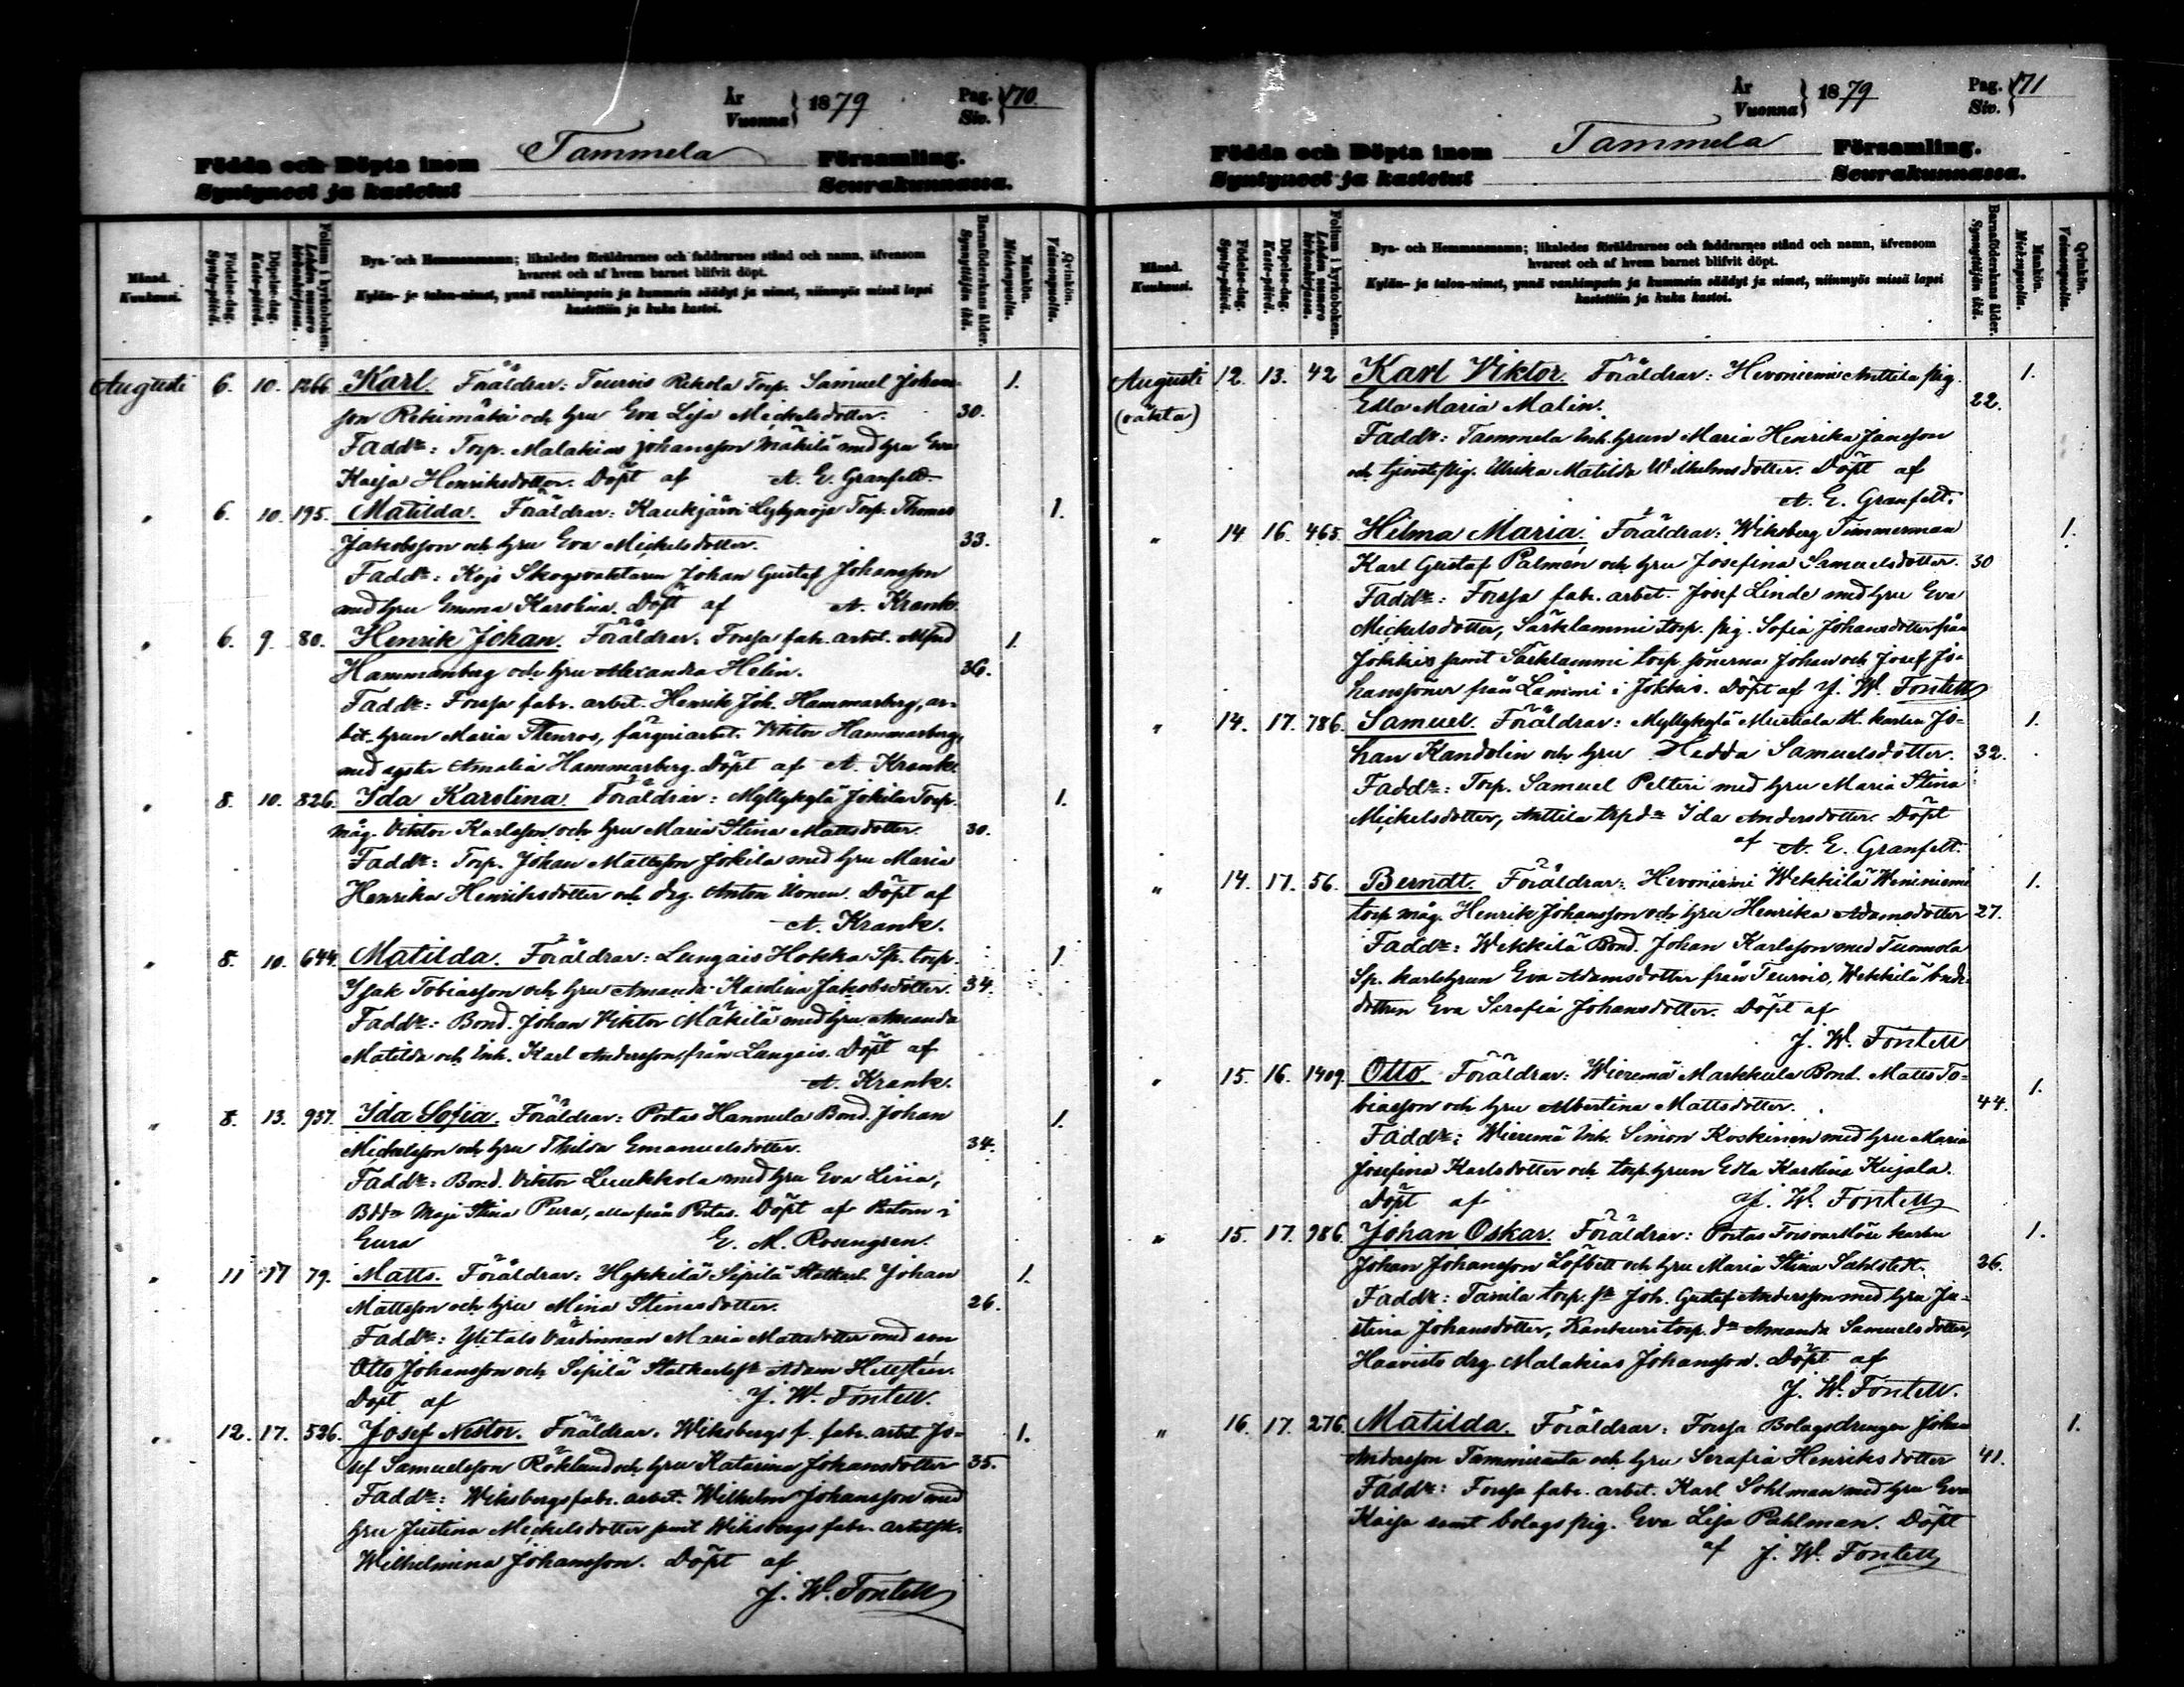 År
Vuonna } 1879
Pag.
Siv. } 170.
Födda och Döpta inom Tammela Församling.
Syntyneet ja kastetut Seurakunnassa.
Månad.
Kuukausi.
Födelse-dag.
Synty-päivä.
Döpelse-dag.
Kaste-päivä.
Folium i kyrkoboken.
Lehden numero kirkonkirjassa.
Bya- och Hemmansnamn; likaledes föräldrarnes och faddrarnes stånd och namn, äfvensom
hvarest och af hvem barnet blifvit döpt.
Kylän- ja talon-nimet, ynnä vanhimpain ja kummein säädyt ja nimet, niinmyös missä lapsi
kastettiin ja kuka kastoi.
Barnaföderskans ålder.
Synnyttäjän ikä.
Mankön.
Miehenpuolia.
Qvinkön.
Vaimonpuolia.
Augusti 6. 10. 1266. Karl. Föräldrar: Teuro Rekola Torp. Samuel Johans- 1.
son Rekumäki och hru Eva Lisa Mickelsdotter. 30.
Faddr: Torp. Malakias Johansson Mäkilä med hru Eva
Kaisa Henriksdotter. Döpt af A. E. Granfelt.
" 6. 10. 195. Matilda. Föräldrar: Kaukjärvi Torp. Thomas 1.
Jakobsson och hru Eva Mickelsdotter. 33.
Faddr: Kojo Skogsvaktaren Johan Gustaf Johansson
med hru Emma Karolina. Döpt af A. Krank.
" 6. 9. 80. Henrik Johan. Föräldrar: Forssa fab. arbet. Alfred 1.
Hammarberg och hru Alexandra Helin. 36.
Faddr: Forssa fabr. arbet. Henrik Joh. Hammarberg, ar-
bet. hrun Maria Stenros, färgeriarbet. Viktor Hammarberg,
med syster Amalia Hammarberg. Döpt af A. Krank.
" 8. 10. 826. Ida Karolina. Föräldrar: Myllykylä Jokila Torp. 1.
måg. Viktor Karlsson och hru Maria Stina Mattsdotter. 30.
Faddr: Torp. Johan Mattsson Jokila med hru Maria
Henrika Henriksdotter och drg. Anton Uonen. Döpt af
A. Krank.
" 8. 10. 644. Matilda. Föräldrar: Lungais Hokka Sp. torp. 1.
Isak Tobiasson och hru Amanda Karolina Jakobsdotter. 34.
Faddr: Bond. Johan Viktor Mäkilä med hru Amanda
Matilda och Inh. Karl Andersson, från Lungais. Döpt af
A. Krank.
" 8. 13. 937. Ida Sofia. Föräldrar: Portas Hannula Bond. Johan 1.
Mickelsson och hru Thilda Emanuelsdotter. 34.
Faddr: Bond. Viktor Luukkola med hru Eva Lisia,
Bddr Maja Stina Pura, alla från Portas. Döpt af Pastorn i
Eura E. M. Rosengren.
" 11 17 79. Matts. Föräldrar: Hykkilä Sipilä Statkarl Johan 1.
Mattsson och hru Mina Stinasdotter. 26.
Faddr: Ylitalo Värdinnan Maria Mattsdotter med son
Otto Johansson och Sipilä Statkarls sr Adam Hellstén.
Döpt af J. W. Fontell.
" 12. 17. 526. Josef Nestor. Föräldrar: Wiksbergs f. fabr. arbet. Jo- 1.
sef Samuelsson Röklund och hru Katarina Johansdotter 35.
Faddr: Wiksbergs fabr. arbet. Wilhelm Johansson med
hru Justina Mickelsdotter samt Wiksbergs fabr. arbetsk.
Wilhelmina Johansson. Döpt af
J. W. Fontell
År
Vuonna } 1879
Pag.
Siv. } 171
Födda och Döpta inom Tammela Församling.
Syntyneet ja kastetut Seurakunnassa.
Månad.
Kuukausi.
Födelse-dag.
Synty-päivä.
Döpelse-dag.
Kaste-päivä.
Folium i kyrkoboken.
Lehden numero kirkonkirjassa.
Bya- och Hemmansnamn; likaledes föräldrarnes och faddrarnes stånd och namn, äfvensom
hvarest och af hvem barnet blifvit döpt.
Kylän- ja talon-nimet, ynnä vanhimpain ja kummein säädyt ja nimet, niinmyös missä lapsi
kastettiin ja kuka kastoi.
Barnaföderskans ålder.
Synnyttäjän ikä.
Mankön.
Miehenpuolia.
Qvinkön.
Vaimonpuolia.
Augusti 12. 13. 42 Karl Viktor. Föräldrar: Hevoniemi Anttila pig. 1.
(oäkta) Edla Maria Malin. 22.
Faddr: Tammela Inh. hrun Maria Henrika Jansson
och tjenstepig. Ulrika Matilda Wilhelmsdotter. Döpt af
A. E. Granfelt.
" 14 16. 465. Hilma Maria. Föräldrar: Wiksberg Timmerman 1.
Karl Gustaf Palmén och hru Josefina Samuelsdotter. 30
Faddr: Forssa fabr. arbet. Josef Linde med hru Eva
Mickelsdotter, Särklammi torp. pig. Sofia Johansdotter från
Jokkis samt Särklammi torp. sönerna Johan och Josef Jo-
hanssöner från Lammi i Jokkis. Döpt af J. W. Fontell
" 14. 17. 786. Samuel. Föräldrar: Myllykylä Mustiala St. karlen Jo- 1.
han Kandolin och hru Hedda Samuelsdotter. 32.
Faddr: Torp. Samuel Pelteri med hru Maria Stina
Mickelsdotter, Anttila trpdr Ida Andersdotter. Döpt
af A. E. Granfelt.
" 14. 17. 56. Berndt. Föräldrar: Hevoniemi Wekkilä Weneniemi 1.
torp. måg. Henrik Johansson och hru Henrika Adamsdotter 27.
Faddr: Wekkilä Bond. Johan Karlsson med Tuomola
Sp. karlshrun Eva Adamsdotter från Teuro, Wekkilä bonde-
dottren Eva Serafia Johansdotter. Döpt af
J. W. Fontell
" 15. 16. 1409. Otto. Föräldrar: Wieremä Markkula Bond. Matts To- 1.
biasson och hru Albertina Mattsdotter. 44.
Faddr: Wieremä Inh. Simon Koskinen med hru Maria
Josefina Karlsdotter och torp. hrun Edla Karolina Kujala.
Döpt af J. W. Fontell
" 15. 17. 986. Johan Oskar. Föräldrar: Portas karlen 1.
Johan Johansson Löfbett och hru Maria Stina Sahlstedt. 26.
Faddr: Tanila torp. sr Joh. Gustaf Andersson med hru Ju-
stina Johansdotter, torp. dr Amanda Samuelsdotter,
Haavisto drg. Malakias Johansson. Döpt af
J. W. Fontell.
" 16. 17. 276. Matilda. Föräldrar: Forssa Bolagsdrengen Johan 1.
Andersson Tammiranta och hru Serafia Henriksdotter 41.
Faddr: Forssa fabr. arbet. Karl Sohlman med hru Eva
Kaisa samt bolags pig. Eva Lisa Pahlman. Döpt
af J. W. Fontell